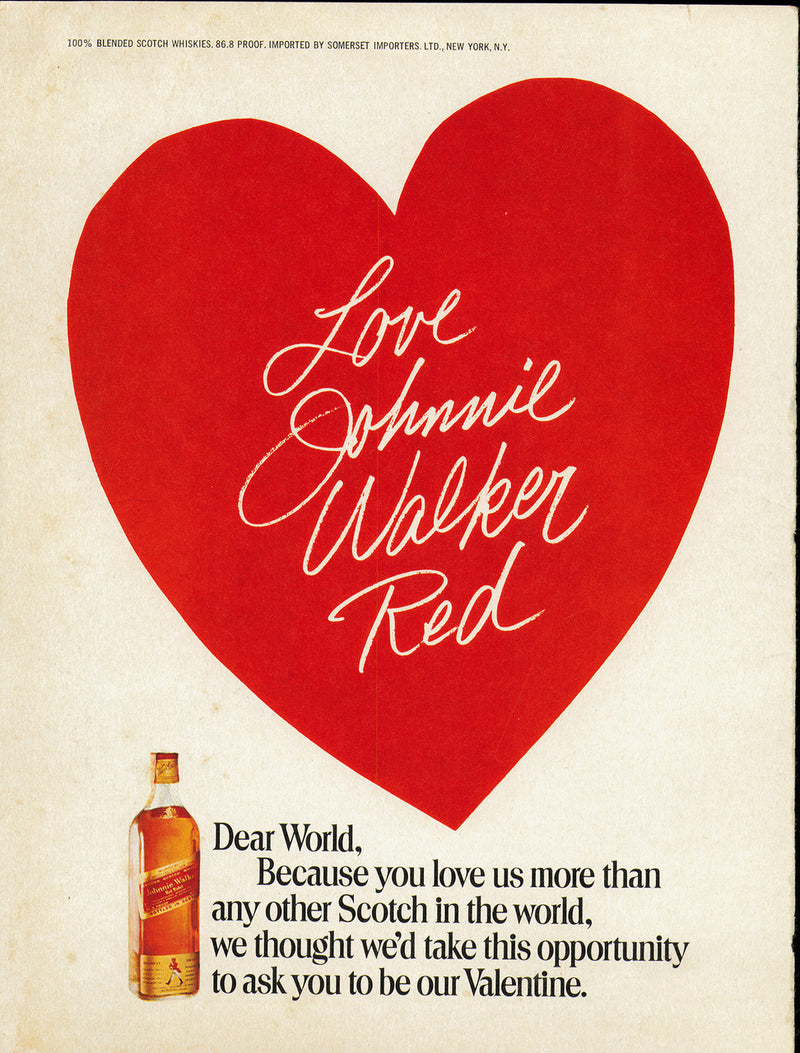 100% BLENDED SCOTCH WHISKIES. 86.8 PROOF. IMPORTED BY SOMERSET IMPORTERS. LTD., NEW YORK, N.Y.
Love
Johnnie
Walker
Red
Johnnie Walker
Red Label
Dear World,
Because you love us more than
any other Scotch in the world,
we thought we'd take this opportunity
to ask you to be our Valentine.